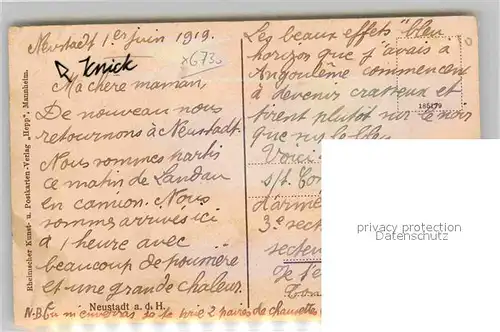 Neustadt 1er juin 1919.
x673
Knick
Ma chère maman,
De nouveau nous
retournons à Neustadt.
Nous sommes partis
ce matin de Landau
en camion. Nous
sommes arrivés ici
à 1 heure avec
beaucoup de poussière
et une grande chaleur.
Neustadt a. d. H.
N-B tu m'enverras je te prie 2 paires de chaussettes
Rheinischer Kunst- u. Postkarten-Verlag "Hepp", Mannheim.
Les beaux effets "bleu
horizon que j'avais à
Angoulême commencent
à devenir crasseux et
tirent plutôt sur le noir
que sur le bleu.
185179
Voici
s/t.
d'armé
3e sect
secteu
Je t'e
privacy protection
Datenschutz